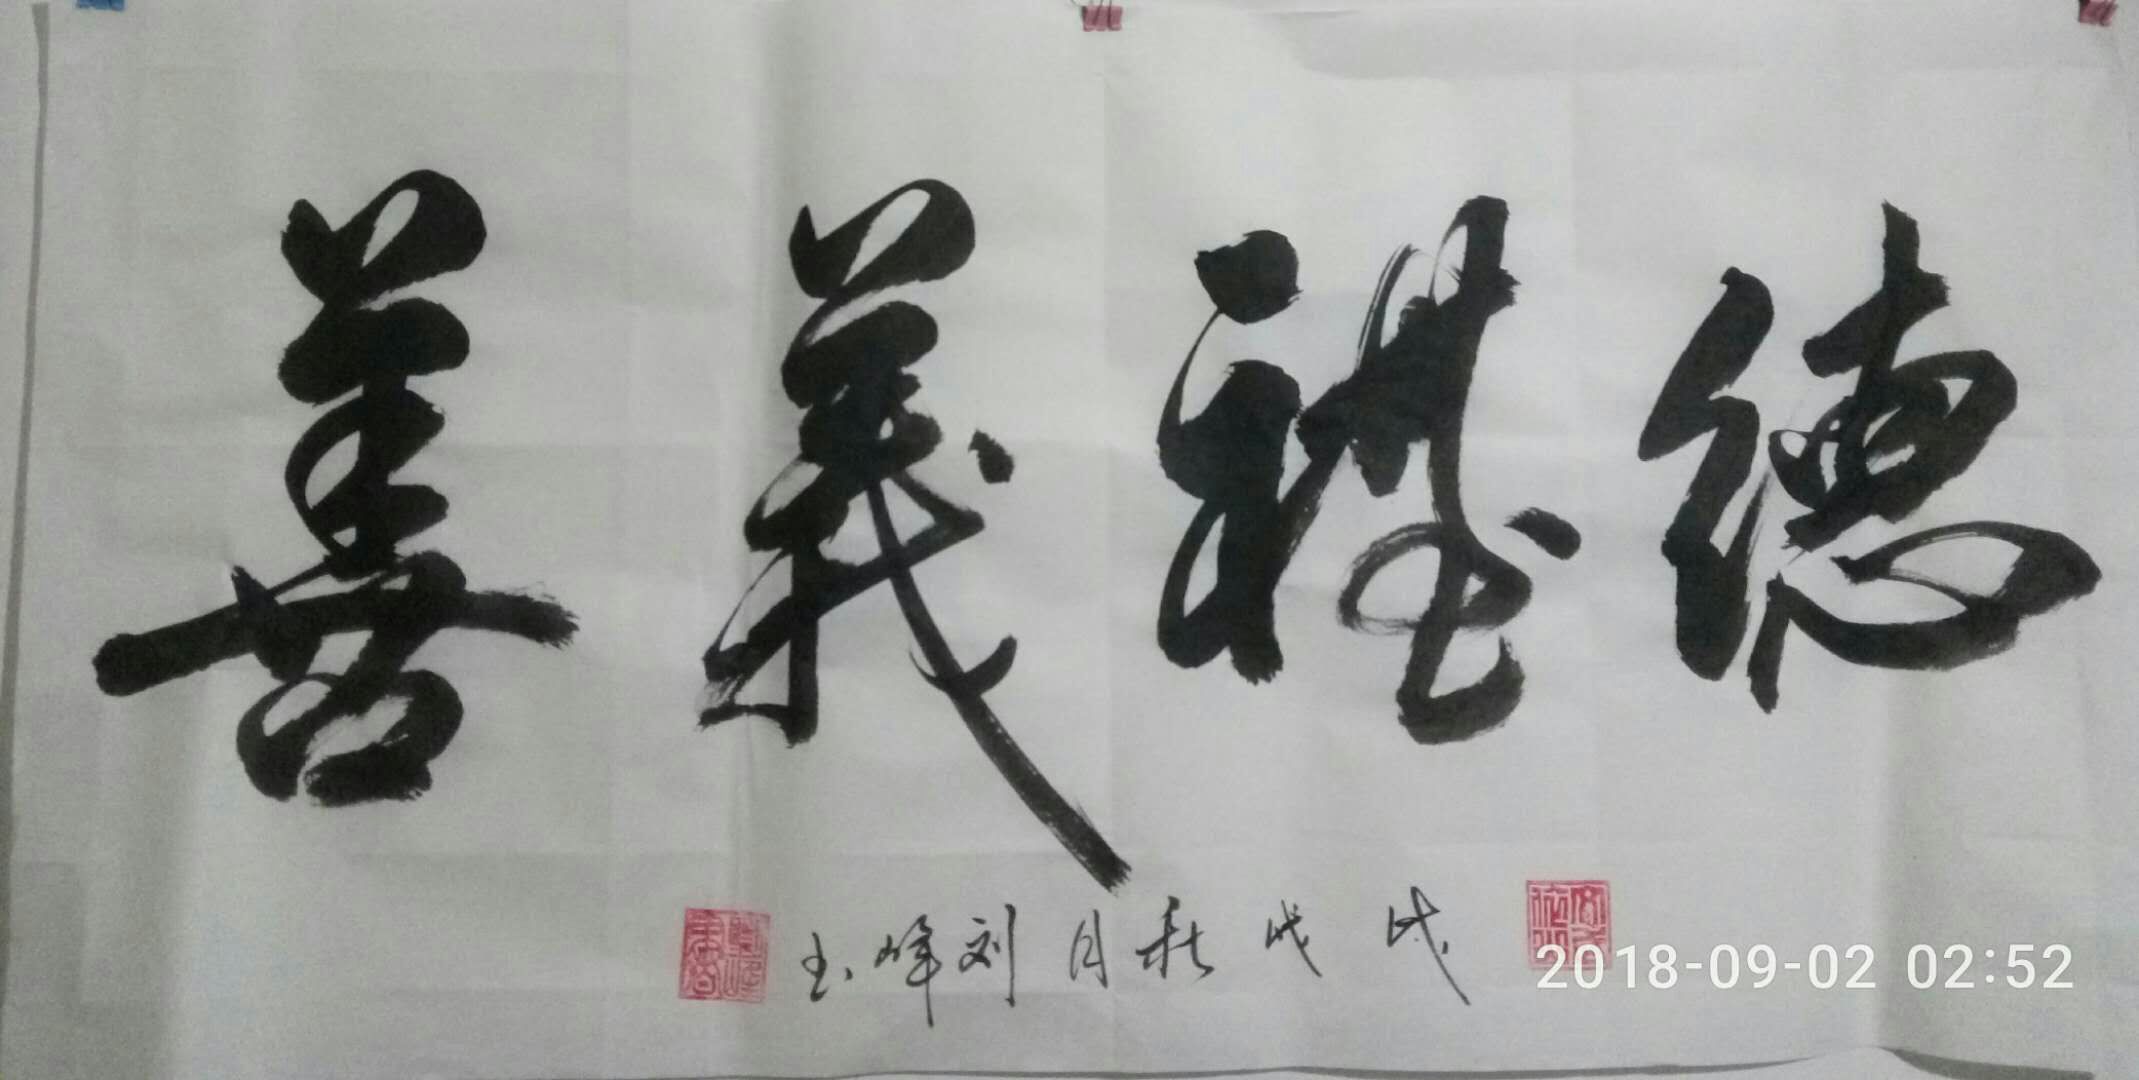 德禮義善
戊戌秋月刘峰书
2018-09-02 02:52